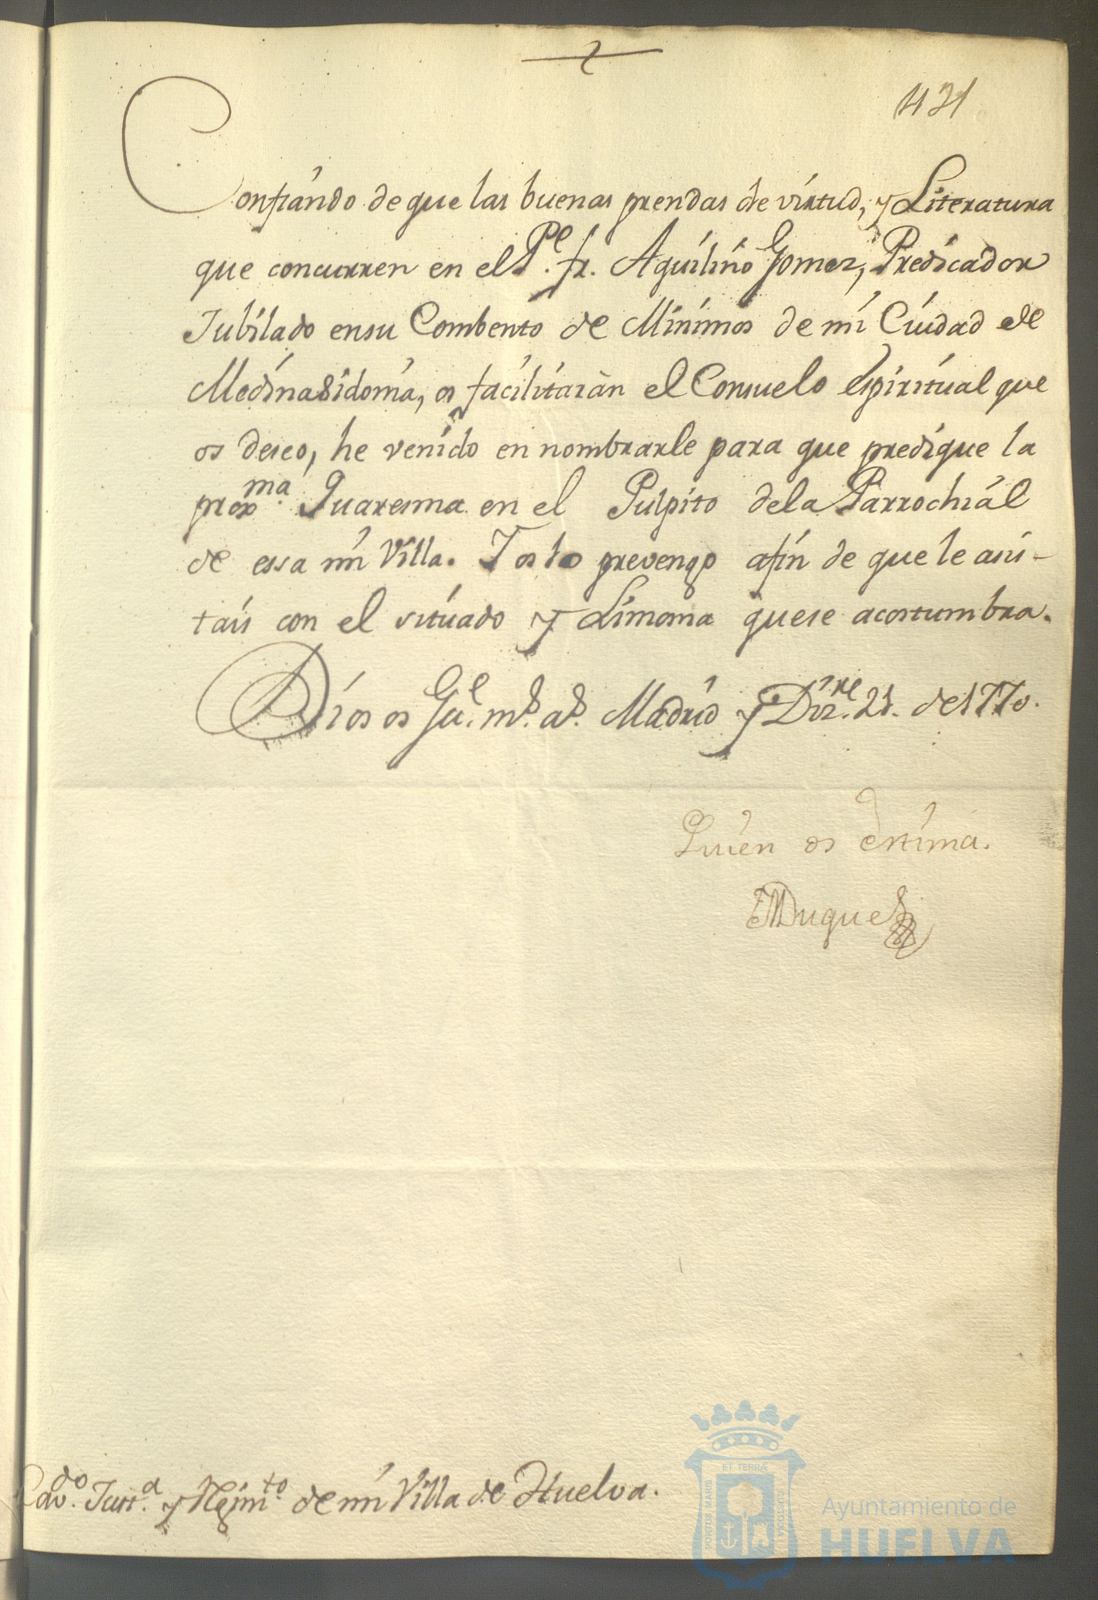 431
Confiando de que las buenas prendas de virtud, y Literatura
que concurren en el Pe. fr. Aquilino Gomez, Predicador
Jubilado ensu Combento de Minimos de mi Ciudad de
Medinasidonia, os facilitaràn el Consuelo Espiritual que
os deseo, he venido en nombrarle para que predique la
proxma. Quaresma en el Pulpito dela Parrochial
de essa mi Villa. Y os lo prevengo afin de que le asis-
tais con el situado y Limosna quese acostumbra.
Dios os Gue. ms. as. Madrid y Dizre. 21. de 1770.
Quien os estima.
El Duque
Cavdo. Justa. y Regimto. de mi Villa de Huelva.
PORTUS MARIS
ET TERRÆ
CUSTODIA
Ayuntamiento de
HUELVA